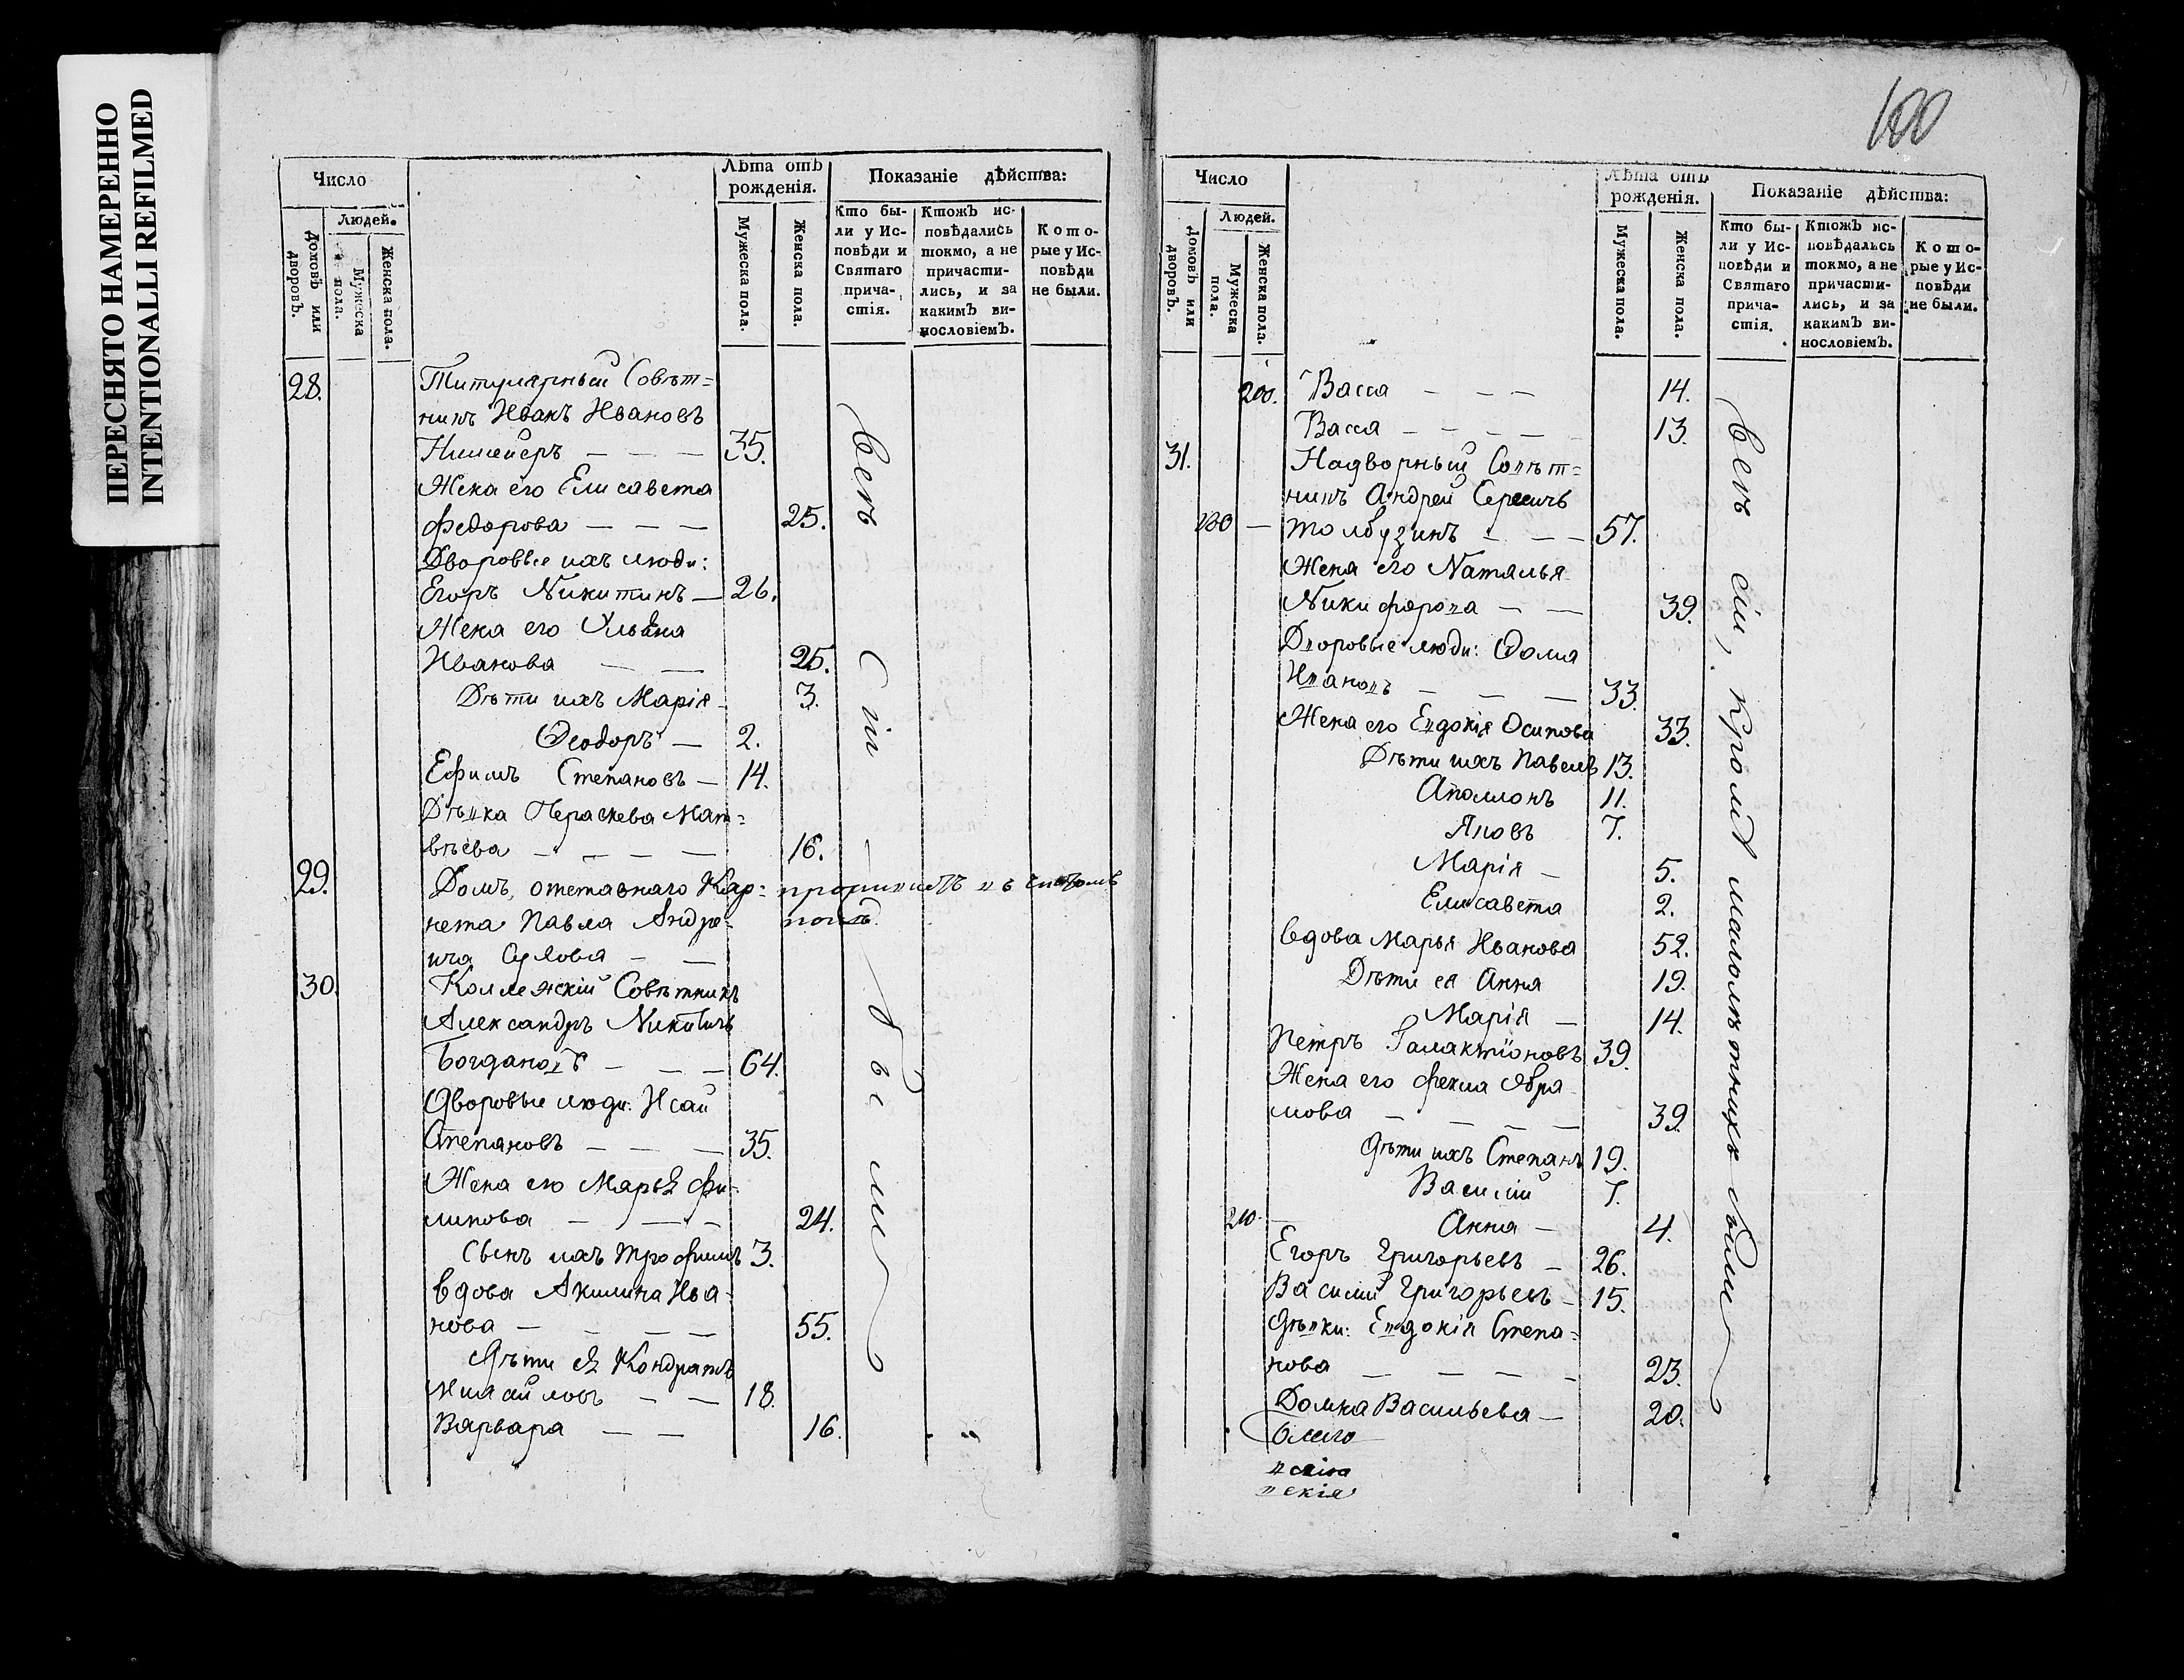 ПЕРЕСНЯТО НАМЕРЕННО
INTENTIONALLI REFILMED
100
Число
Людей.
Домовъ или дворовъ.
Мужеска пола.
Женска пола.
Лѣта отъ рожденія.
Мужеска пола.
Женска пола.
Показаніе дѣйства:
Кто бы-
ли у Ис-
повѣди и
Святаго
прича-
стія.
Ктожъ ис-
повѣдались
токмо, а не
причасти-
лись, и за
какимъ ви-
нословіемъ.
Кото-
рые у Ис-
повѣди
не были.
28. Титулярный Совѣт=
никъ Иванъ Ивановъ
— — — 35.
Жена его Елисавета
Федорова — — — 25.
Дворовые ихъ люди:
Егоръ Никитинъ — 26.
Жена его Ульяна
Иванова — — 25.
Дѣти ихъ Марія — 3.
Ѳеодоръ — 2.
Ефимъ Степановъ — 14.
Дѣвка Параскева Мат=
вѣева — — — — 16.
29. Домъ, отставнаго Кор=
нета Павла Андре-
ича — —
30. Коллежскій Совѣтникъ
Александръ Никитичъ
Богдановъ — — — 64.
Дворовые люди: Исай
Степановъ — — — 35.
Жена его Марья Фи-
липова — — — 24.
Сынъ ихъ Трофимъ 3.
Вдова Акилина Ива-
нова — — — — 55.
Дѣти ея Кондратъ
Михайловъ — — 18.
Варвара — — 16.
Всѣ сіи были
Число
Людей.
Домовъ или дворовъ.
Мужеска пола.
Женска пола.
Лѣта отъ рожденія.
Мужеска пола.
Женска пола.
Показаніе дѣйства:
Кто бы-
ли у Ис-
повѣди и
Святаго
прича-
стія.
Ктожъ ис-
повѣдались
токмо, а не
причасти-
лись, и за
какимъ ви-
нословіемъ.
Кото-
рые у Ис-
повѣди
не были.
200. Васса — — — 14.
Васса — — — — 13.
31. Надворный Совѣт=
никъ Андрей Сергеичь
Толбузинъ — — — 57.
Жена его Наталья
Никифорова — — 39.
Дворовые люди: Ѳома
Ивановъ — — — 33.
Жена его Евдокія Осипова 33.
Дѣти ихъ Павелъ 13.
Аполлонъ 11.
Яковъ 7.
Марія — 5.
Елисавета 2.
Вдова Марья Иванова 52.
Дѣти ея Анна 19.
Марія — 14.
Петръ Галактіоновъ 39.
Жена его Фекла Абра-
мова — — — — 39.
Дѣти ихъ Степанъ 19.
Василій 7.
210. Анна — 4.
Егоръ Григорьевъ — 26.
Василій Григорьевъ — 15.
Дѣвки: Евдокія Степа=
нова — — — — 23.
Домна Васильева — 20.
Всѣ сіи, кромѣ малолѣтнихъ были